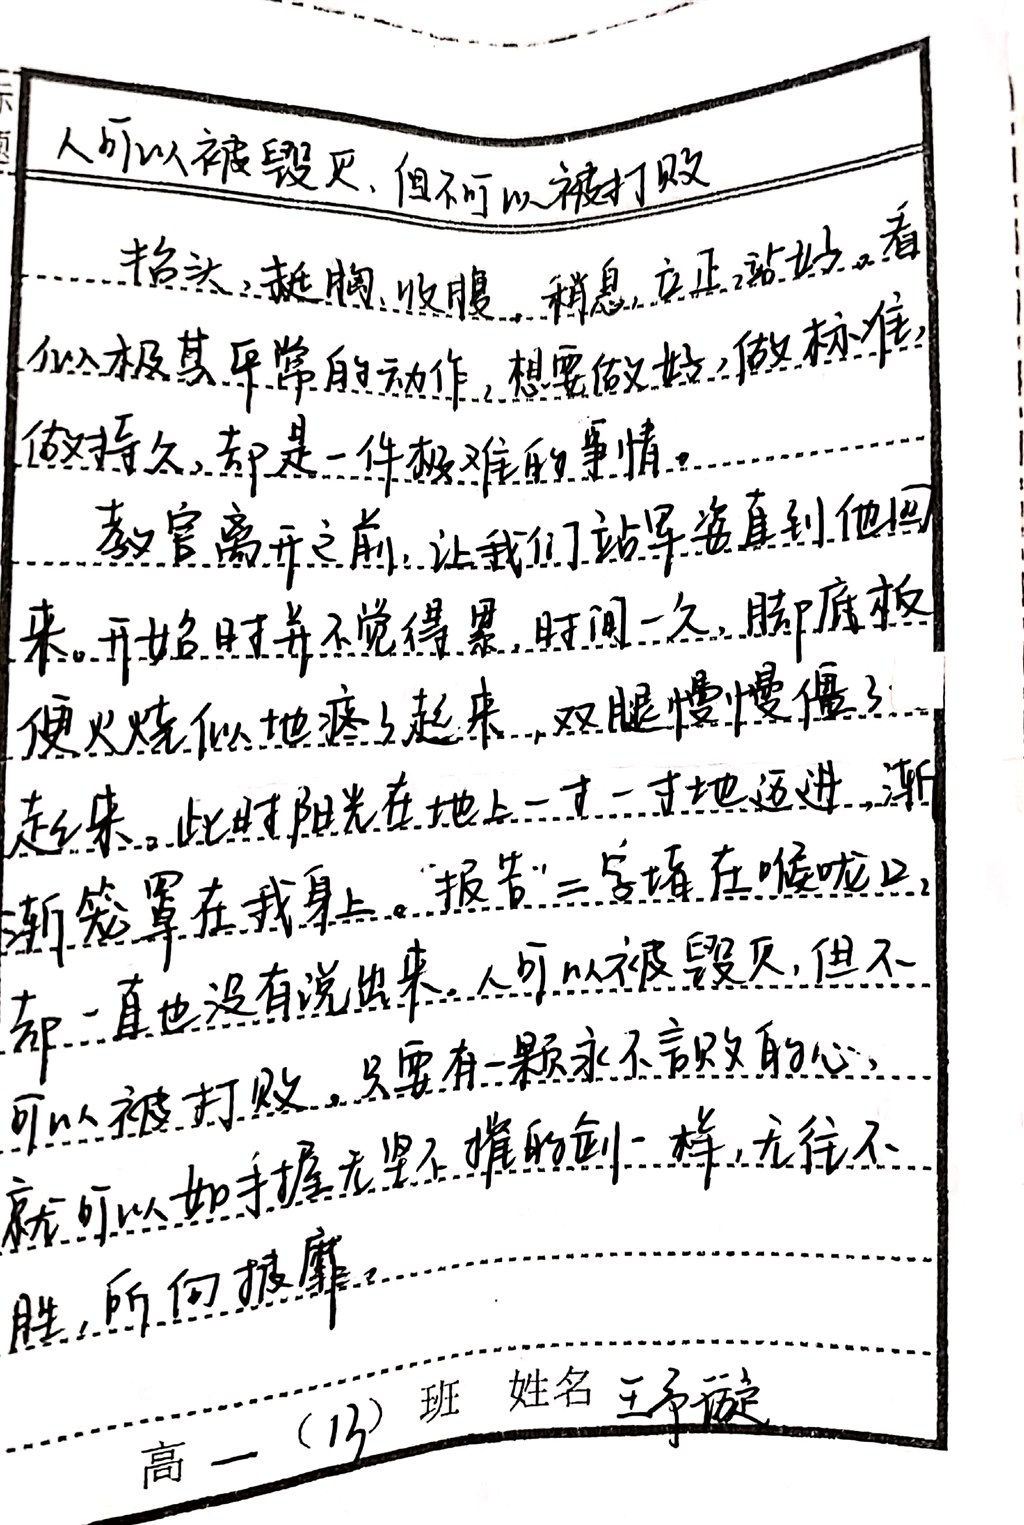 标题
人可以被毁灭，但不可以被打败
抬头，挺胸，收腹，稍息，立正，站好。看
似极其平常的动作，想要做好，做标准，
做持久，却是一件极难的事情。
教官离开之前，让我们站军姿直到他回
来。开始时并不觉得累，时间一久，脚底板
便火烧似地疼了起来，双腿慢慢僵了
起来。此时阳光在地上一寸一寸地迈进，渐
渐笼罩在我身上。“报告”二字堵在喉咙口，
却一直也没有说出来。人可以被毁灭，但不
可以被打败。只要有一颗永不言败的心，
就可以如手握无坚不摧的剑一样，无往不
胜，所向披靡。
高一（13）班 姓名 王予谈